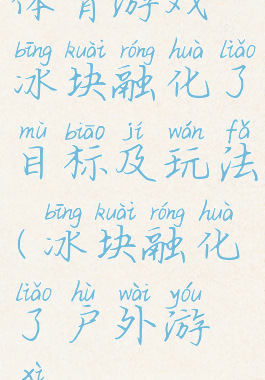 体育游戏
bīng kuài róng huà liǎo
冰块融化了
mù biāo jí wán fǎ
目标及玩法
bīng kuài róng huà
（冰块融化
liǎo hù wài yóu
了户外游
xì